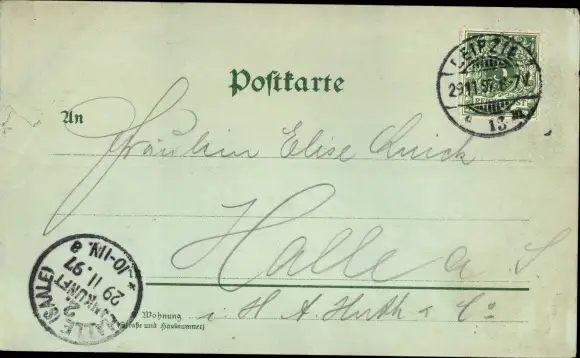 Postkarte
LEIPZIG
29.11.97. 6-7V.
* 13 m
REICHSPOST
An
Fräulein Elise Quick
Halle a. S.
HALLE (SAALE)
ANKUNFT
29 11. 97
10-11V.
i. H. A. Huth & Co
Wohnung
(Straße und Hausnummer)